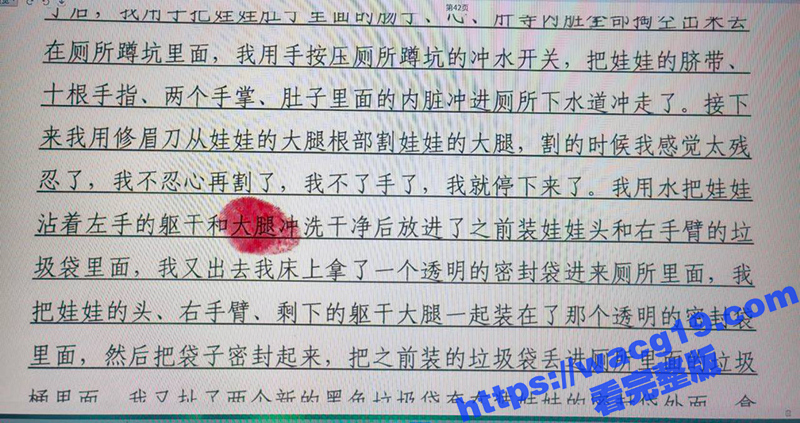 第42页
了后，我用手把娃娃肚子里面的肠子、心、肝等内脏全部掏空出来丢
在厕所蹲坑里面，我用手按压厕所蹲坑的冲水开关，把娃娃的脐带、
十根手指、两个手掌、肚子里面的内脏冲进厕所下水道冲走了。接下
来我用修眉刀从娃娃的大腿根部割娃娃的大腿，割的时候我感觉太残
忍了，我不忍心再割了，我不了手了，我就停下来了。我用水把娃娃
沾着左手的躯干和大腿冲洗干净后放进了之前装娃娃头和右手臂的垃
圾袋里面，我又出去我床上拿了一个透明的密封袋进来厕所里面，我
把娃娃的头、右手臂、剩下的躯干大腿一起装在了那个透明的密封袋
里面，然后把袋子密封起来，把之前装的垃圾袋丢进厕所里面的垃圾
桶里面。我又扯了两个新的黑色垃圾袋套在装娃娃的密封袋外面，拿
https://wacg19.com
看完整版